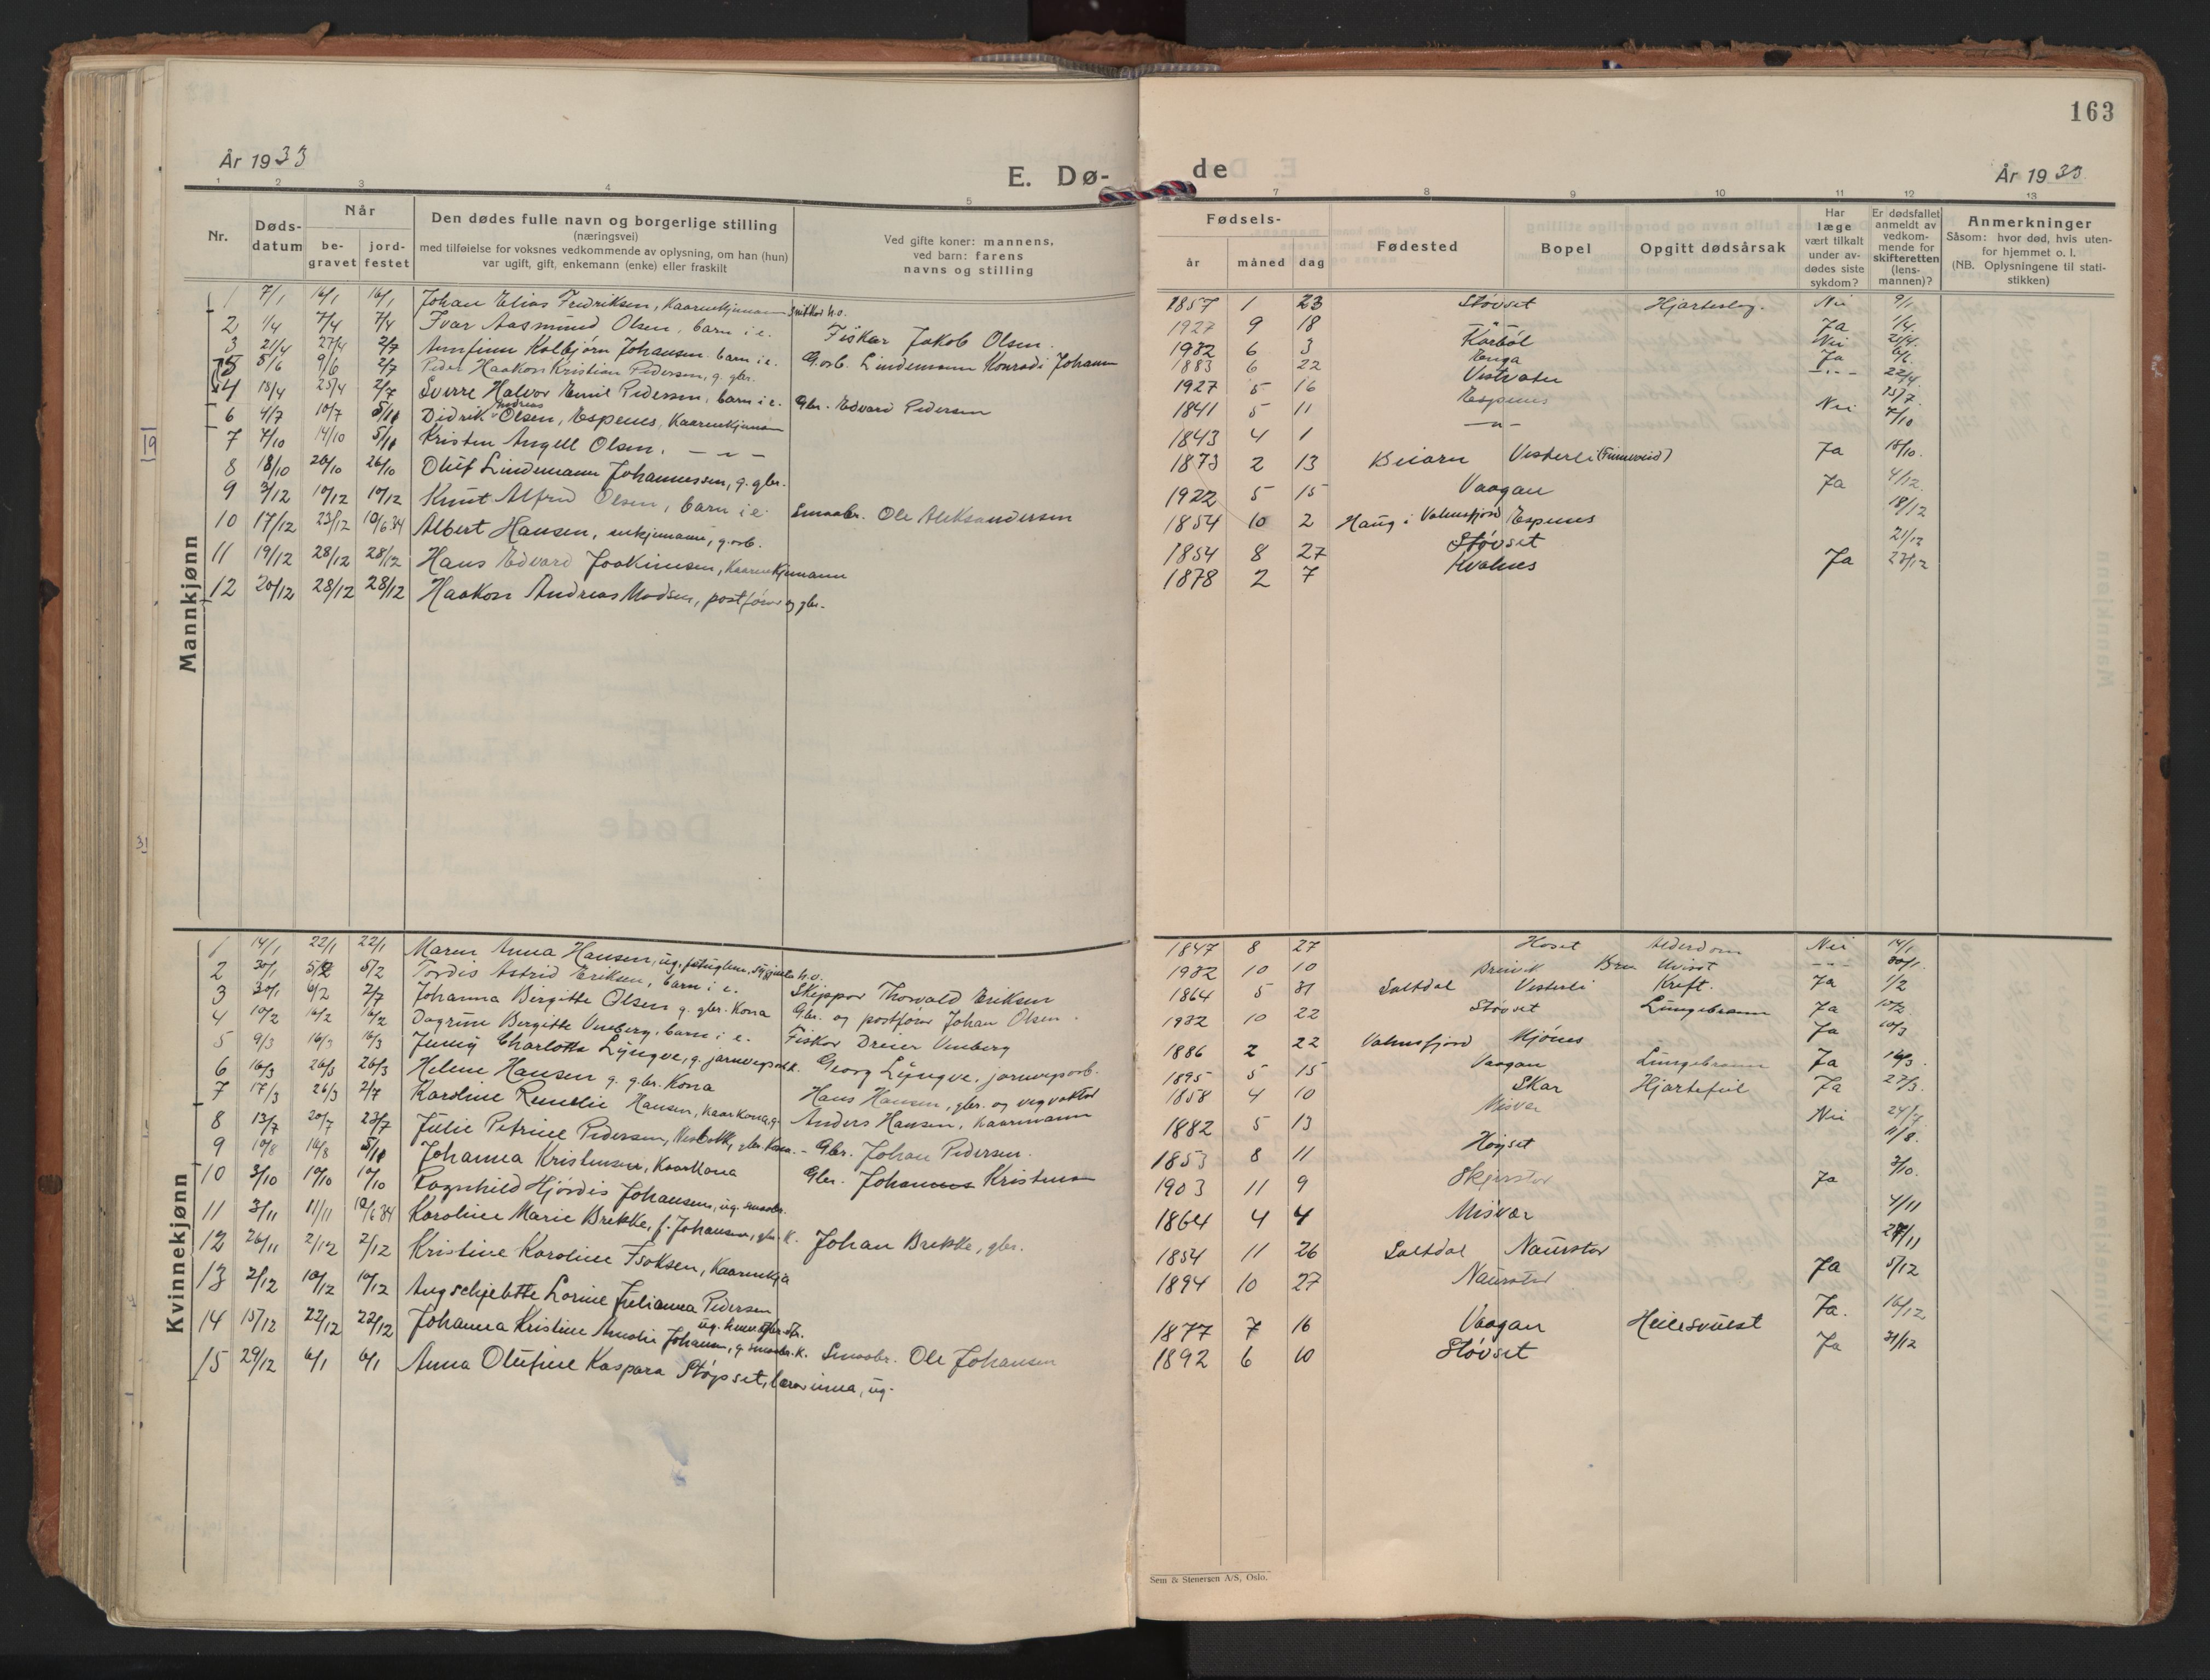 163
År 1933
E. Dø-
de
År 1933
1 2 3 4 5 7 8 9 10 11 12 13
Nr.
Døds-
datum
Når
be-
gravet
jord-
festet
Den dødes fulle navn og borgerlige stilling
(næringsvei)
med tilføielse for voksnes vedkommende av oplysning, om han (hun)
var ugift, gift, enkemann (enke) eller fraskilt
Ved gifte koner: mannens,
ved barn: farens
navns og stilling
Fødsels-
år måned dag
Fødested
Bopel
Opgitt dødsårsak
Har
læge
vært tilkalt
under av-
dødes siste
sykdom?
Er dødsfallet
anmeldt av
vedkom-
mende for
skifteretten
(lens-
mannen)?
Anmerkninger
Såsom: hvor død, hvis uten-
for hjemmet o. l.
(NB. Oplysningene til stati-
stikken)
Mannkjønn
1 7/1 16/1 16/1 Johan Elias Fredriksen, Kaarenkjemann 1857 1 23 Støvset Hjarteslag. Nei 9/1
2 1/4 7/4 7/4 Ivar Aasmund Olsen, barn i e. Fiskar Jakob Olsen. 1927 9 18 Ja 1/4.
3 21/4 27/4 2/7 Arnfinn Kolbjørn Johansen barn i e. G.arb. Lindemann Konradi Johansen 1932 6 3 Karbøl Nei 25/4.
5 5/6 9/6 2/7 Peder Haakon Kristian Pedersen, g. gbr. 1883 6 22 Enga Ja 6/6.
4 18/4 25/4 2/7 Sverre Halvor Emil Pedersen, barn i e. Gbr. Edvard Pedersen 1927 5 16 Vestvatn 22/4
6 4/7 10/7 5/11 Didrik Andreas Olsen, Espenes, Kaarenkjemann 1841 5 11 Espenes 13/7
7 4/10 14/10 5/11 Kristen Angell Olsen. 1843 4 1 Nei 7/10
8 18/10 26/10 26/10 Oluf Lindemann Johannessen, g. gbr. 1873 2 13 Beiarn Vesterli (Finneveid) Ja 18/10.
9 3/12 10/12 10/12 Knut Alfred Olsen, barn i e. Smaabr. Ole Aleksandersen 1922 5 15 Vaagan Ja 4/12.
10 17/12 23/12 10/6.34 Albert Hansen, enkjemann, g.arb. 1854 10 2 Haug i Valnesfjord Espenes 18/12
11 19/12 28/12 28/12 Hans Edvard Joakimsen, Kaarenkjemann 1854 8 27 Støvset 21/12
12 20/12 28/12 28/12 Haakon Andreas Madsen, postfører og gbr. 1878 2 7 Kvalnes Ja 27/12
Kvinnekjønn
1 14/1 22/1 22/1 Maren Anna Hansen, ug. 1847 8 27 Hoset Alderdom Nei 14/1
2 30/1 5/2 5/2 Tordis Astrid Eriksen, barn i e. Skipper Thorvald Eriksen 1932 10 10 Breivik Bru Uvisst 30/1.
3 30/1 6/2 2/7 Johanna Birgitte Olsen g. gbr. Kona Gbr. og postfører Johan Olsen. 1864 5 31 Saltdal Vesterli Kreft. Ja 1/2
4 10/2 16/2 16/2 Dagrun Bergitte Venberg, barn i e. Fisker Dreier Venberg 1932 10 22 Støvset Lungebrann Ja 10/2
5 9/3 16/3 16/3 Jenny Charlotte Lyngve, g. jarnvegsarb.k. Georg Lyngve, jarnvegsarb. 1886 2 22 Valnesfjord Mjønes Ja 10/3
6 16/3 26/3 26/3 Helene Hansen g. gbr. Kona Hans Hansen, gbr. og vegvaktar 1895 5 15 Vaagan Lungebrann Ja 16/3
7 17/3 26/3 2/7 Karoline Remelie Hansen, Kaarkona, g. Anders Hansen, Kaarmann 1858 4 10 Skar Hjartefeil Ja 27/3.
8 13/7 20/7 23/7 Julie Petrine Pedersen, Nesbakk, gbr. Kona. - Gbr. Johan Pedersen. 1882 5 13 Misvær Nei 24/7
9 10/8 16/8 5/11 Johanna Kristensen, Kaarkona Gbr. Johannes Kristensen 1853 8 11 Høgset 11/8.
10 3/10 10/10 10/10 Ragnhild Hjørdis Johansen, ug. smaabr. 1903 11 9 Skjerstad Ja 3/10.
11 3/11 11/11 10/6 34 Karoline Marie Brekke, f. Johansen, gbr. K. Johan Brekke, gbr. 1864 4 4 Misvær 4/11
12 26/11 2/12 2/12 Kristine Karoline Isaksen, Kaarenkja 1854 11 26 Saltdal Naurstad 27/11
13 2/12 10/12 10/12 Angschjelette Lorine Julianna Pedersen 1894 10 27 Naurstad Ja 5/12
14 15/12 22/12 22/12 Johanna Kristine Amalie Johansen, g. smaabr. K. Smaabr. Ole Johansen 1877 7 16 Vaagan Heilesvulst Ja. 16/12
15 29/12 6/1 6/1 Anna Olufine Kaspara Støpset, lærarinna, ug. 1892 6 10 Støvset Ja 31/12
Sem & Stenersen A/S, Oslo.